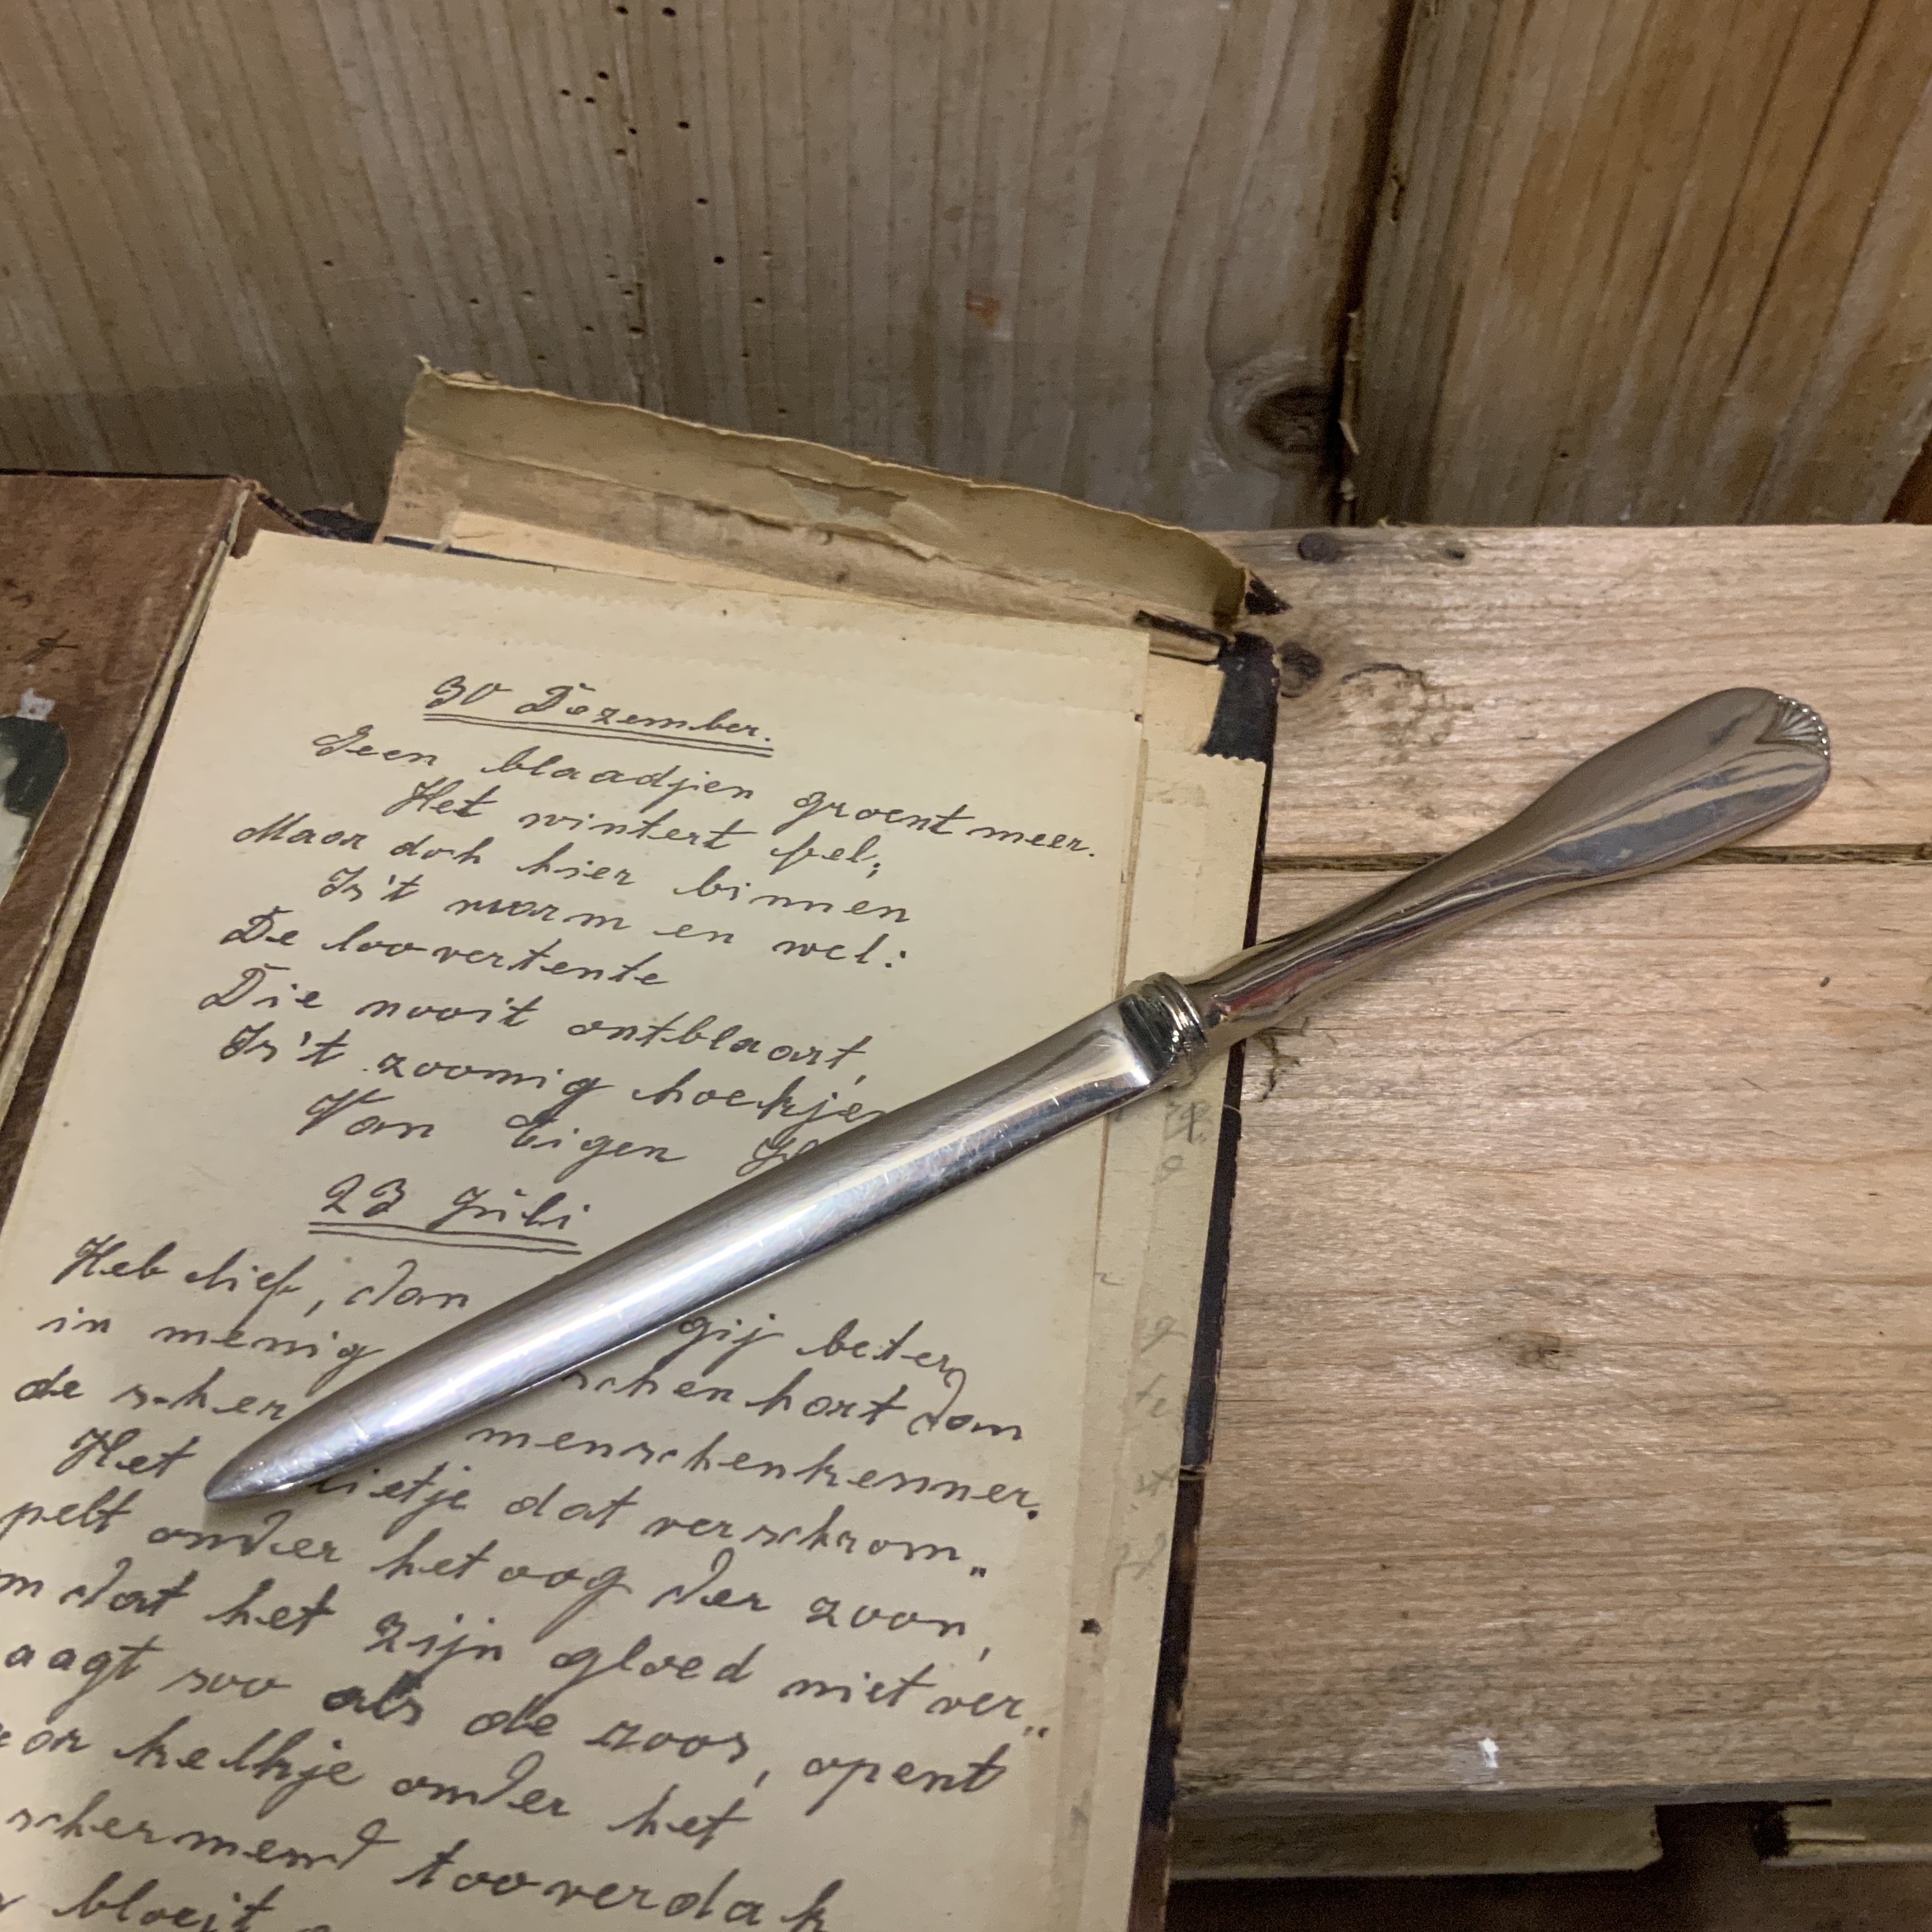 30 Dezember.
Geen blaadjen groent meer.
Het wintert fel;
Maar doch hier binnen
Is't warm en wel:
De loovertente
Die nooit ontblaart,
Is't zoonnig hoekjen
Van Eigen
23 Juli
Heb lief, dan gij beter
in menig schenhart dan
de scher menschenkenner.
Het dat verschrom„
pelt onder het oog der zoon,
dat het zijn gloed niet ver„
aagt soo als de roos, opent
kelkje onder het
schermend tooverdak
bloeit